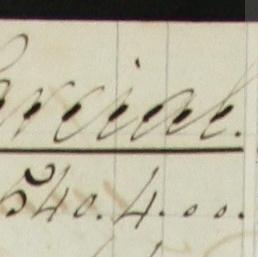 arcial.
540.4.00.